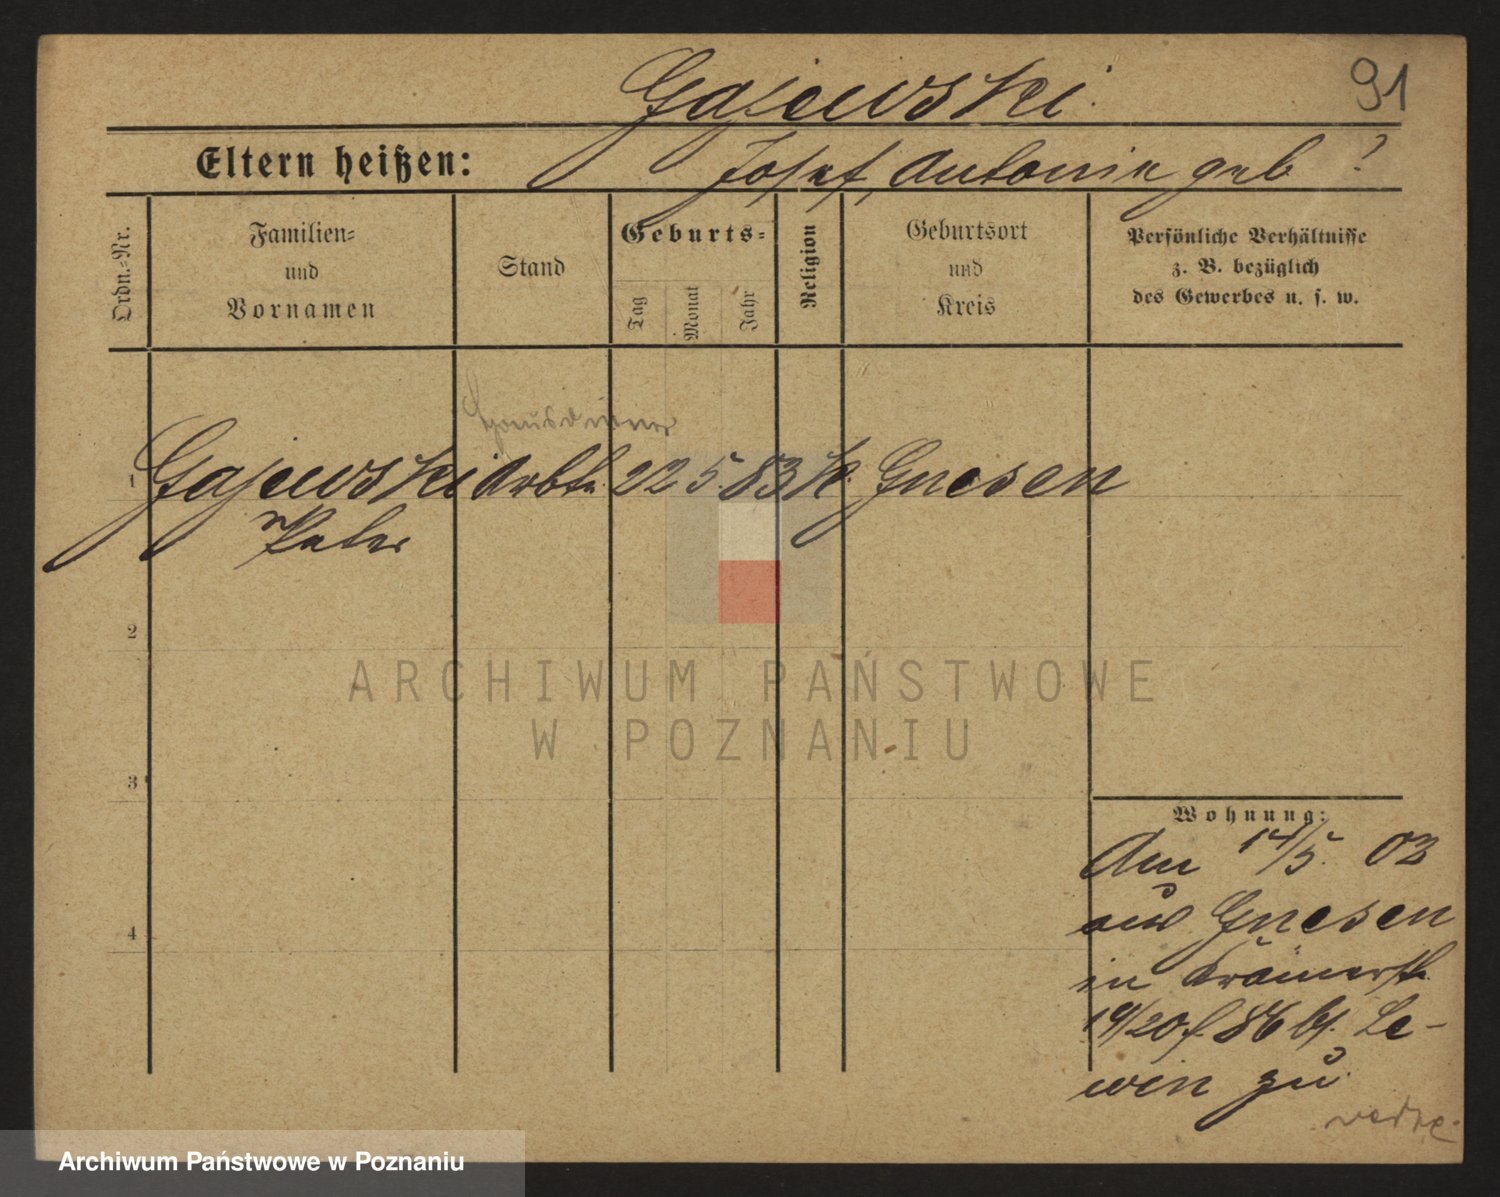 Gajewski.
91
Eltern heißen: Josef, Antonie geb ?
Ordn.-Nr.
Familien-
und
Vornamen
Stand
Geburts-
Tag
Monat
Jahr
Religion
Geburtsort
und
Kreis
Persönliche Verhältnisse
z. B. bezüglich
des Gewerbes u. s. w.
Hausdiener
1 Gajewski Arbtr. 22 5. 83 k. Gnesen
Peter
2
ARCHIWUM PAŃSTWOWE
W POZNANIU
3
Wohnung:
Am 14/5. 03
aus Gnesen
in Krämerstr.
19/20 f. 86 b/. Le-
win zu.
4
Archiwum Państwowe w Poznaniu